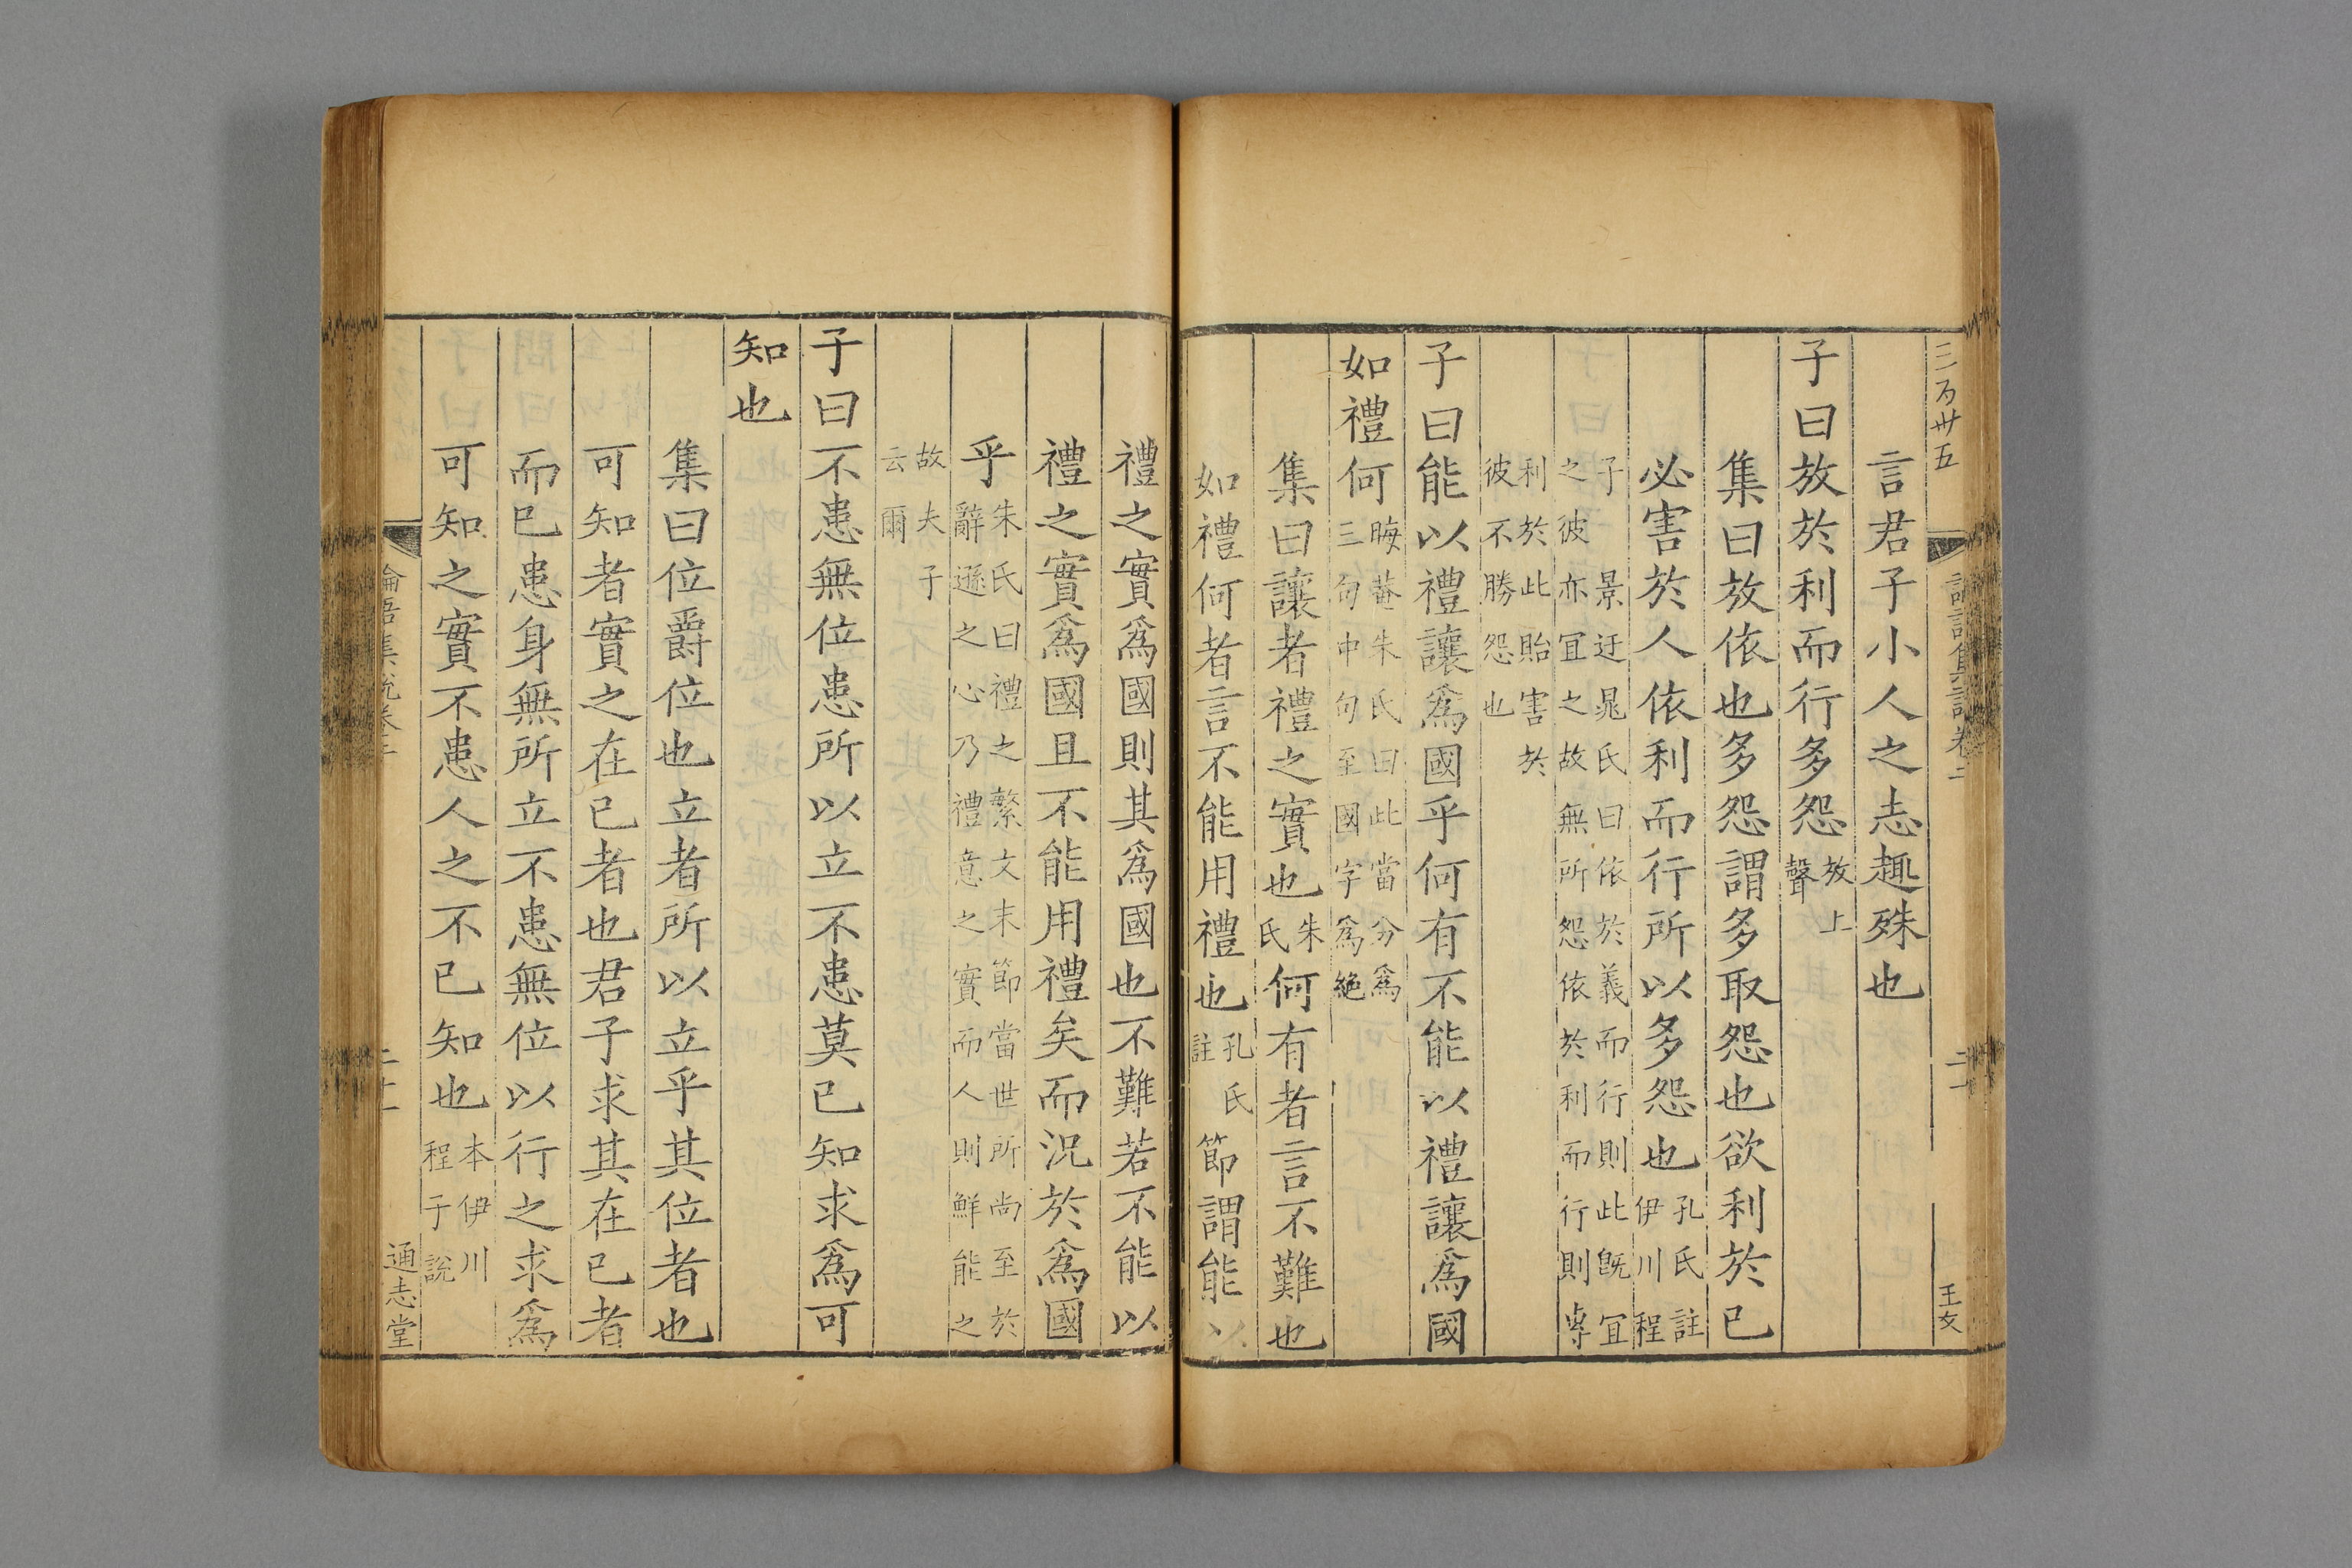 三百卅五
王攵
言君子小人之志趣殊也
子曰放於利而行多怨放上
聲
集曰放依也多怨謂多取怨也欲利於已
必害於人依利而行所以多怨也孔氏註
伊川程
子 景迂晁氏曰依於義而行則此旣宜
之彼亦宜之故無所怨依於利而行則專
利於此貽害於
彼不勝怨也
子曰能以禮讓爲國乎何有不能以禮讓爲國
如禮何晦菴朱氏曰此當分爲
三句中句至國字爲絶
集曰讓者禮之實也朱
氏何有者言不難也
如禮何者言不能用禮也孔氏
註節謂能以
禮之實爲國則其爲國也不難若不能以
禮之實爲國且不能用禮矣而況於爲國
乎朱氏曰禮之繁文末節當世所尚至於
辭遜之心乃禮意之實而人則鮮能之
故夫子
云爾
子曰不患無位患所以立不患莫已知求爲可
知也
集曰位爵位也立者所以立乎其位者也
可知者實之在已者也君子求其在已者
而已患身無所立不患無位以行之求爲
可知之實不患人之不已知也本伊川
程子說
論語集說卷二
二十一
通志堂